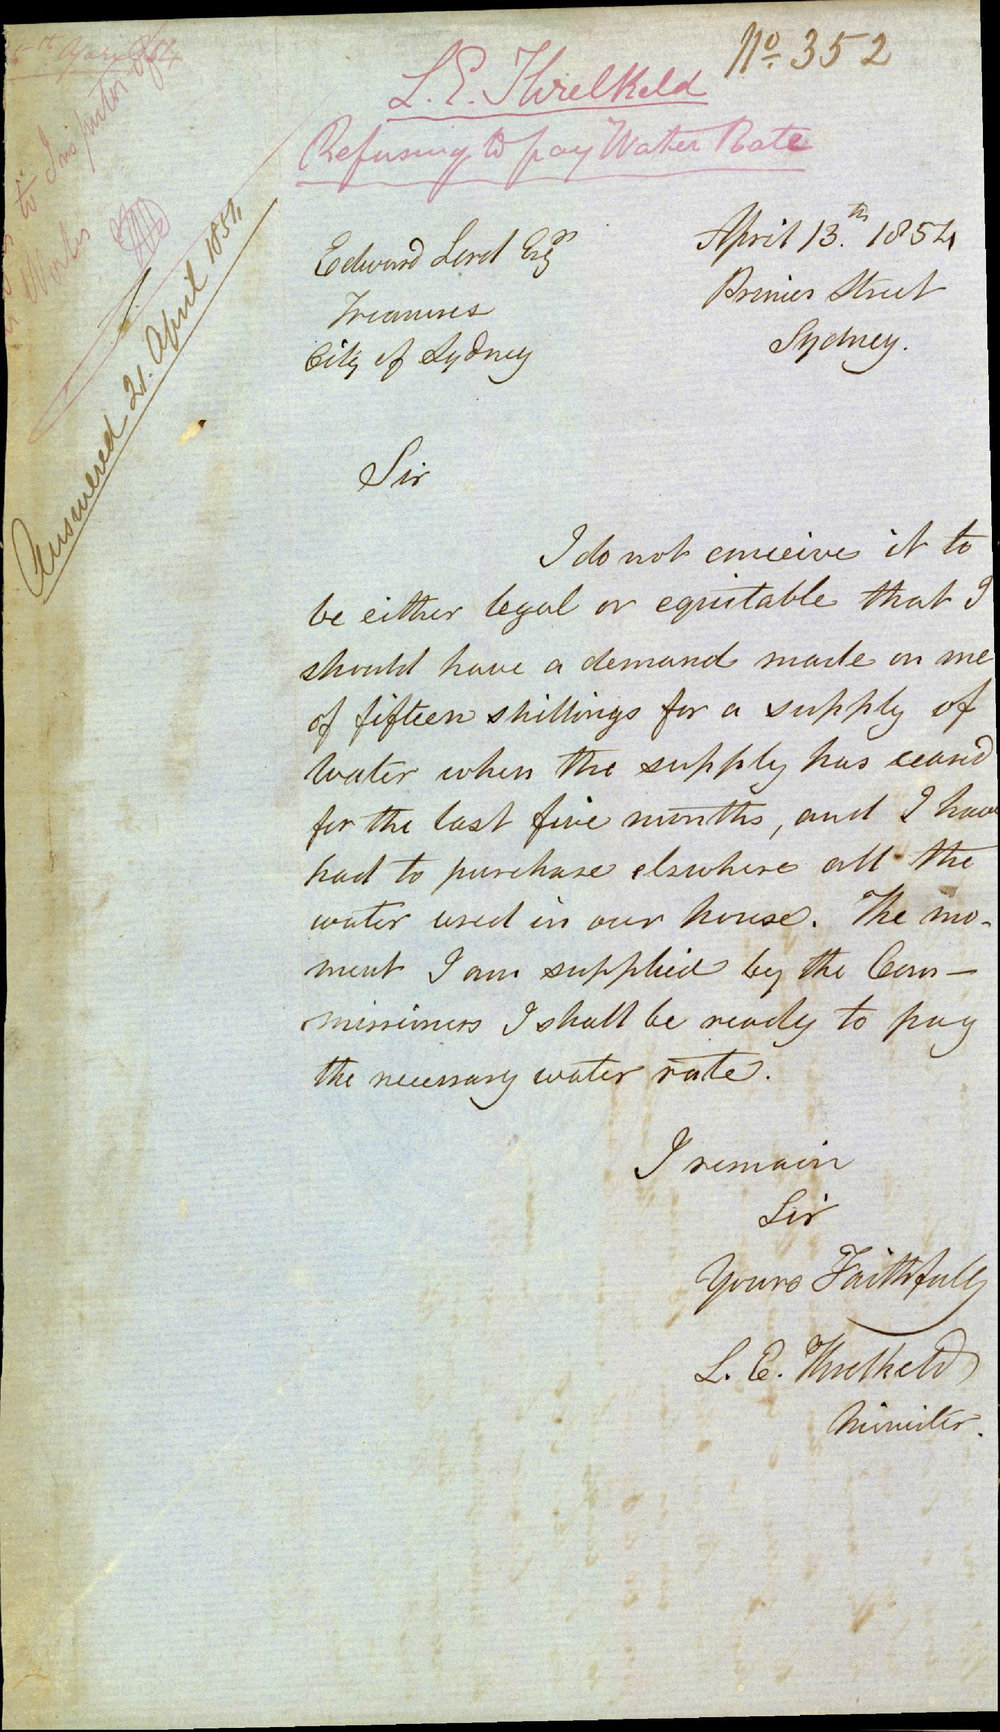 No. 352
L. E. Threlkeld
Refusing to pay Water Rate
to Inspector of
Works
Answered 21. April 1854
April 13.th 1854
Street
Sydney.
Edward Lord Esqr
Treasurer
City of Sydney
Sir
I do not conceive it to
be either legal or equitable that I
should have a demand made on me
of fifteen shillings for a supply of
water when the supply has ceased
for the last five months, and I have
had to purchase elsewhere all the
water used in our house. The mo-
ment I am supplied by the Com-
missioners I shall be ready to pay
the necessary water rate.
I remain
Sir
Yours Faithfully
L. E. Threlkeld
Minister.